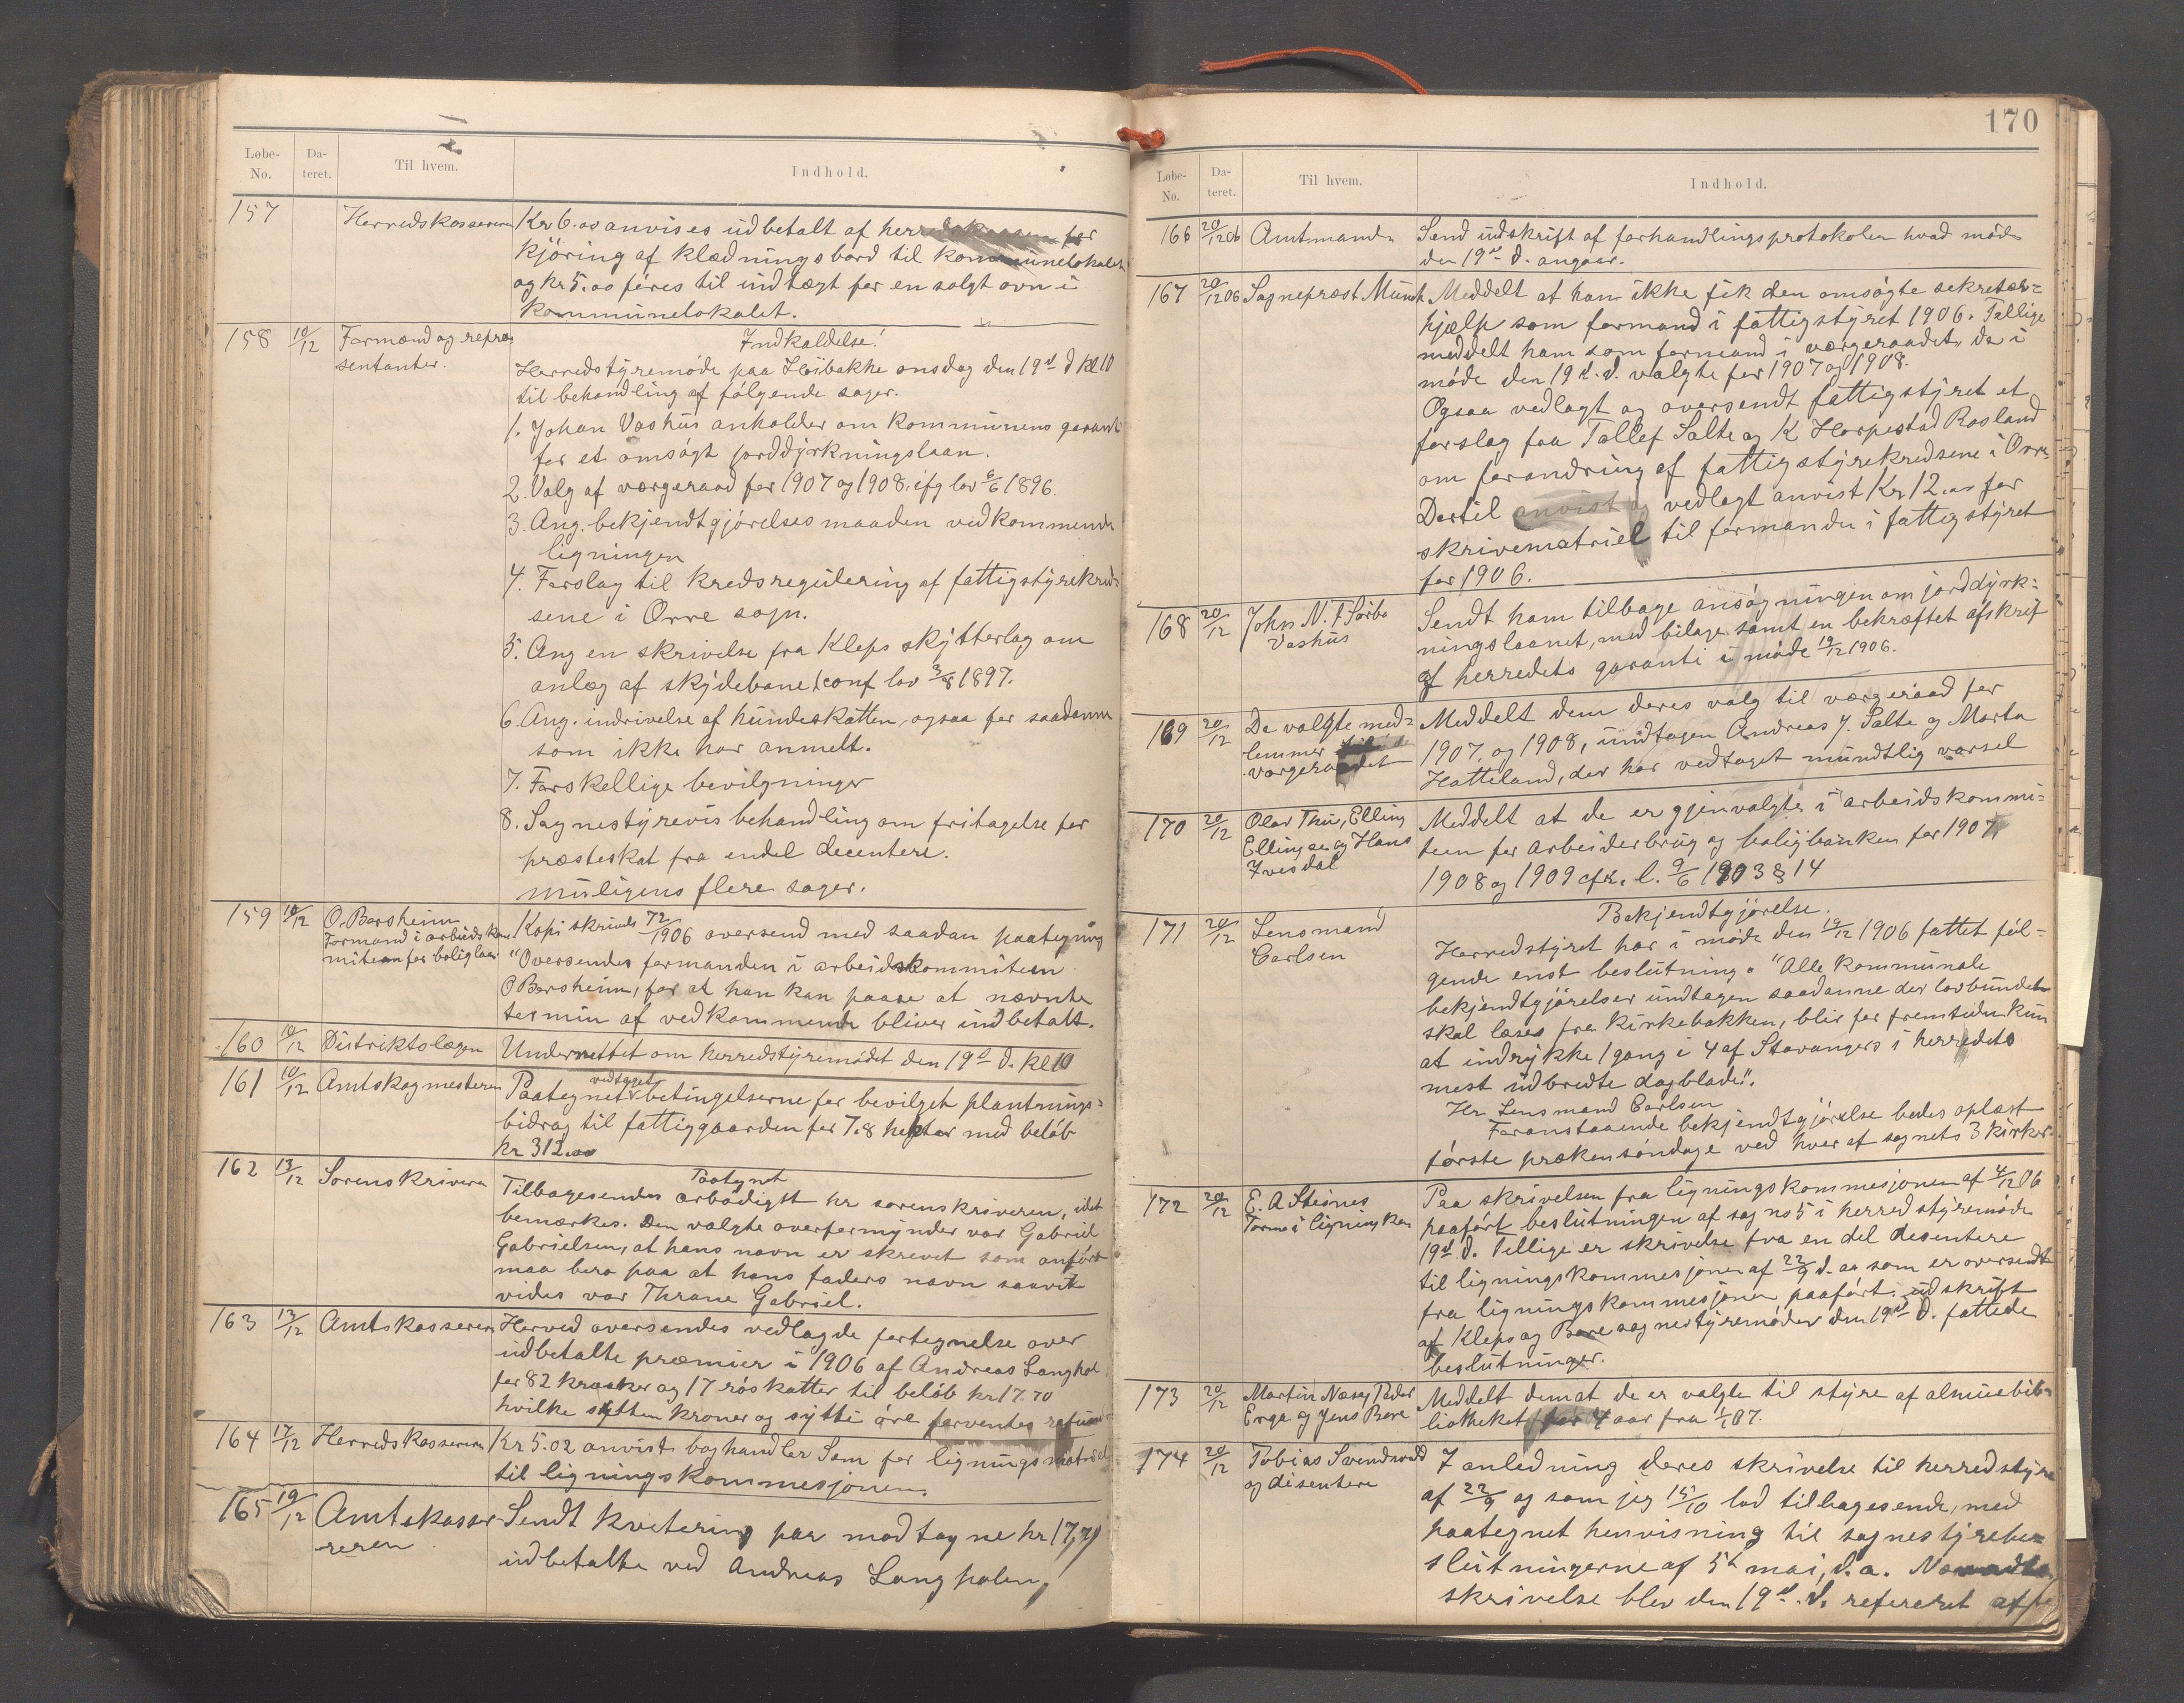 Løbe-No. Dateret. Til hvem. Indhold.
157 Herredskasseren Kr 6.00 anvises udbetalt af herredskassen for
kjøring af klædningsbord til kommunelokalet
og kr 5.00 føres til indtægt for en solgt ovn i
kommunelokalet.
158 10/12 Formænd og repræ
sentanter.
Indkaldelse!
Herredstyremøde paa Høibakke onsdag den 19d d Kl 10
til behandling af følgende sager.
1. Johan Vashus anholder om kommunens garanti
for et omsøgt jorddyrkningslaan.
2. Valg af værgeraad for 1907 og 1908. ifg lov 6/6 1896.
3. Ang. bekjendtgjørelses maaden vedkommende
ligningen
4. Forslag til kredsregulering af fattigstyrekred-
sene i Orre sogn.
5. Ang en skrivelse fra Kleps skytterlag om
anlæg af skydebane, conf lov 3/8 1897.
6. Ang. indrivelse af hundeskatten, ogsaa for saadanne
som ikke har anmelt.
7. Forskellige bevilgninger
8. Sognestyrevis behandling om fritagelse for
presteskat fra endel decentere.
muligens flere sager.
159 10/12 O. Borsheim
Formand i arbeidskom
miteen for boliglaan
Kopi skrivels 72/1906 oversend med saadan paategning
"Oversendes formanden i arbeidskommiteen
O Borsheim, for at han kan paase at nævnte
termin af vedkommende bliver indbetalt.
160 10/12 Distriktslægen Underrettet om herredstyremødet den 19d d. kl 10
161 10/12 Amtskogmesteren Paategnet vedtaget betingelserne for bevilget plantnings-
bidrag til fattiggaarden for 7.8 hektar med beløb
kr 312.00
162 13/12 Sorenskriveren
Paategnet
Tilbagesendes ærbødigst hr sorenskriveren, idet
bemærkes. Den valgte overformynder var Gabriel
Gabrielsen, at hans navn er skrevet som anført
maa bero paa at hans faders navn saavidt
vides var Thrane Gabriel.
163 13/12 Amtskasseren Herved oversendes vedlagde fortegnelse over
udbetalte præmier i 1906 af Andreas Langhol
for 82 kraaker og 17 røskatter til beløb kr 17.70
hvilke sytten kroner og sytti øre forventes
164 17/12 Herredskasseren Kr 5.02 anvist boghandler Søm for lignings
til ligningskommesjonen.
165 19/12 Amtskasse-
reren
Sendt kvitering paa modtagne kr 17,70
udbetalte ved Andreas Langholen,
170
Løbe-No. Dateret. Til hvem. Indhold.
166 20/12 06 Amtmanden Send udskrift af forhandlingsprotokolen hvad møde
den 19d d. angaar.
167 20/12 06 Sognepræst Munch Meddelt at han ikke fik den omsøgte sekretær-
hjælp som formand i fattigstyret 1906. Tillige
meddelt ham som formand i værgeraadet, de i
møde den 19d. d. valgte for 1907 og 1908.
Ogsaa vedlagt og oversendt fattigstyret et
forslag fra Tollef Salte og K Horpestad Rosland
om forandring af fattigstyrekredsene i Orre
Dertil anvist og vedlagt anvist Kr 12.00 for
skrivematriel til formanden i fattigstyret
for 1906.
168 20/12 John N. f Sørbø
Vashus
Sendt ham tilbage ansøgningen om jorddyrk-
ningslaanet, med bilage samt en bekræftet afskrift
af herredets garanti i møde 19/12 1906.
169 20/12 De valgte med-
lemmer
værgeraadet
Meddelt dem deres valg til værgeraad for
1907 og 1908, undtagen Andreas J. Salte og Marta
Hatteland, der har vedtaget mundtlig varsel
170 20/12 Olav Thu, Elling
Ellingsen og Hans
Ivesdal
Meddelt at de er gjenvalgte i arbeidskommi-
teen for arbeiderbrug og boligbanken for 1907,
1908 og 1909 cfr. l. 9/6 1903 § 14
171 20/12 Lensmand
Carlsen
Bekjendtgjørelse.
Herredstyret har i møde den 19/12 1906 fattet føl-
gende enst beslutning. "Alle kommunale
bekjendtgjørelser undtagen saadanne der lovbunden
skal læses fra kirkebakken, blir for fremtiden kun
at indrykke 1 gang i 4 af Stavangers i herredets
mest udbredte dagblade".
Hr Lensmand Carlsen
Foranstaaende bekjendtgjørelse bedes oplæst
første prækensøndage ved hver af sognets 3 kirker.
172 20/12 E. A Steines
Form i lignings kom
Paa skrivelsen fra ligningskommesjonen af 4/12 06
paaført beslutningen af sag no 5 i herredstyremøde
19d d. Tillige er skrivelse fra en del desentere
til ligningskommesjonen af 22/9 d. aa som er oversendt
fra ligningskommesjonen paaført udskrift
af Klep og Bore sognestyremøder den 19d d. fattede
beslutninger.
173 20/12 Martin Næsy Peder
Erga og Jens Bore
Meddelt dem at de er valgte til styre af almuebib-
liotheket for 4 aar fra 1/1 07.
174 20/12 Tobias Svendsvold
og disentere
I anledning deres skrivelse til herredstyre
af 22/9 og som jeg 15/10 lod tilbagesende, med
paategnet henvisning til sognestyrebe-
slutningerne af 5t mai, d. a. Nævndte
skrivelse blev den 19d. d. refereret